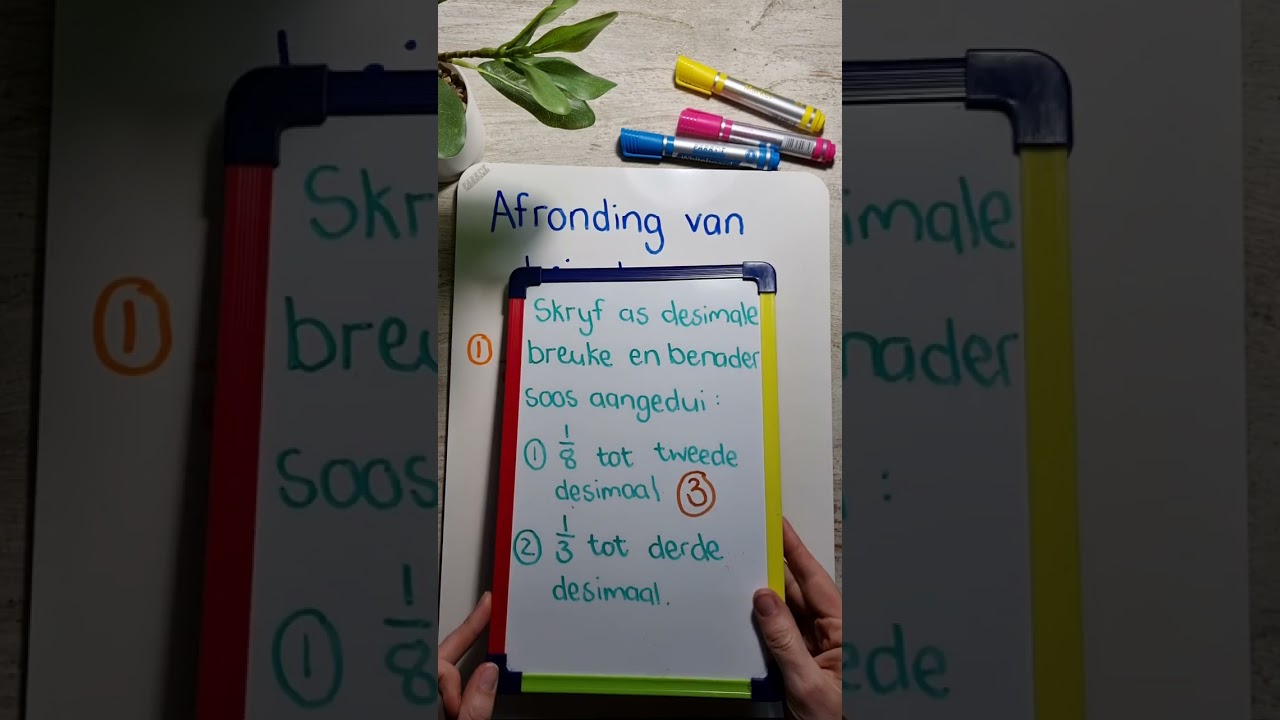 Afronding van
①
Skryf as desimale
breuke en benader
soos aangedui:
① 1/8 tot tweede
desimaal ③
② 1/3 tot derde
desimaal.